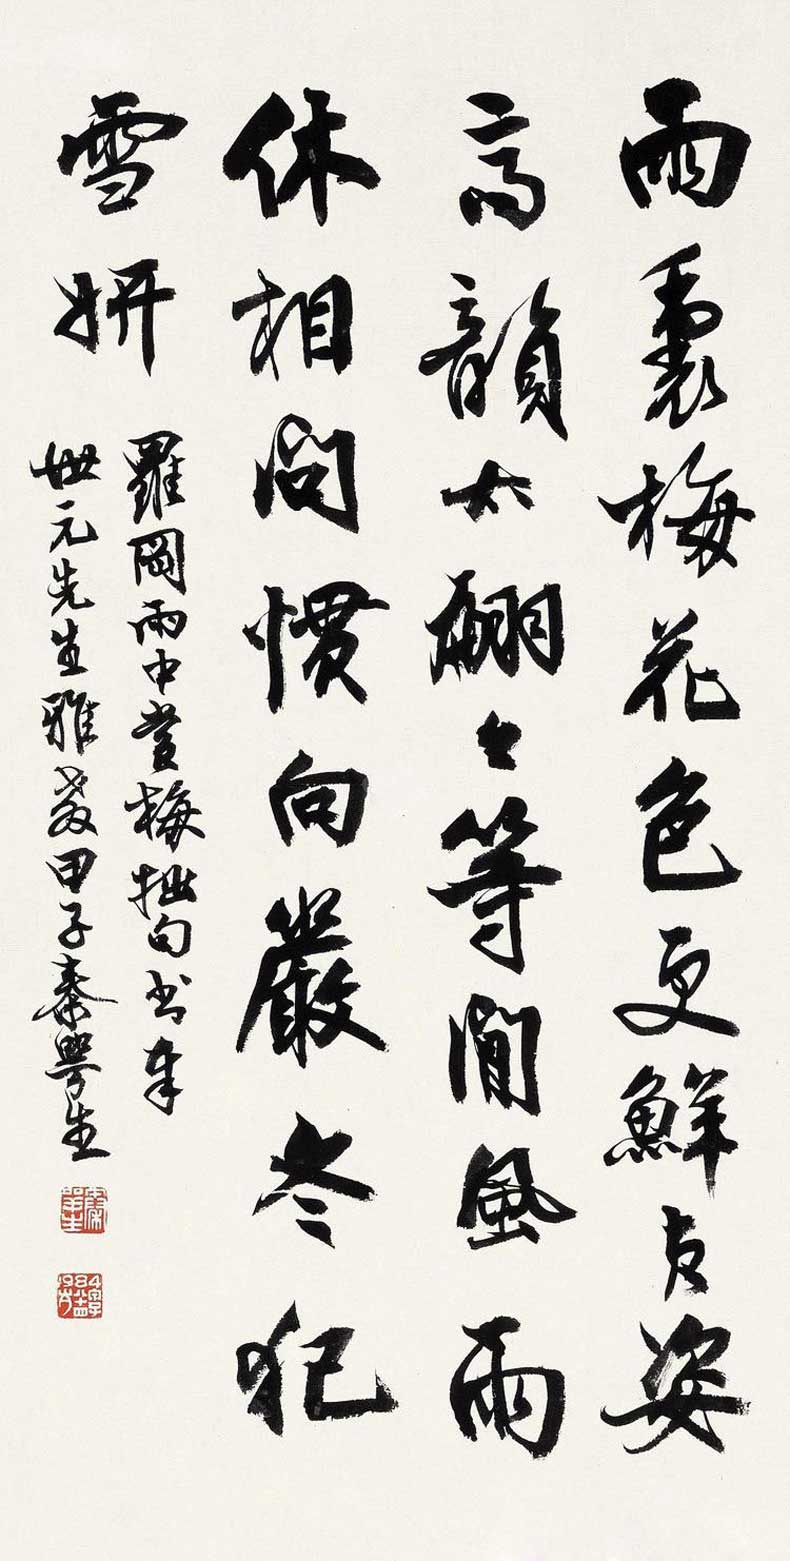 雨裏梅花色更鮮貞姿
高韻太翩々等閒風雨
休相問慣向嚴冬犯
雪妍
羅岡雨中賞梅拙句書奉
世元先生雅教甲子秦咢生
秦咢生